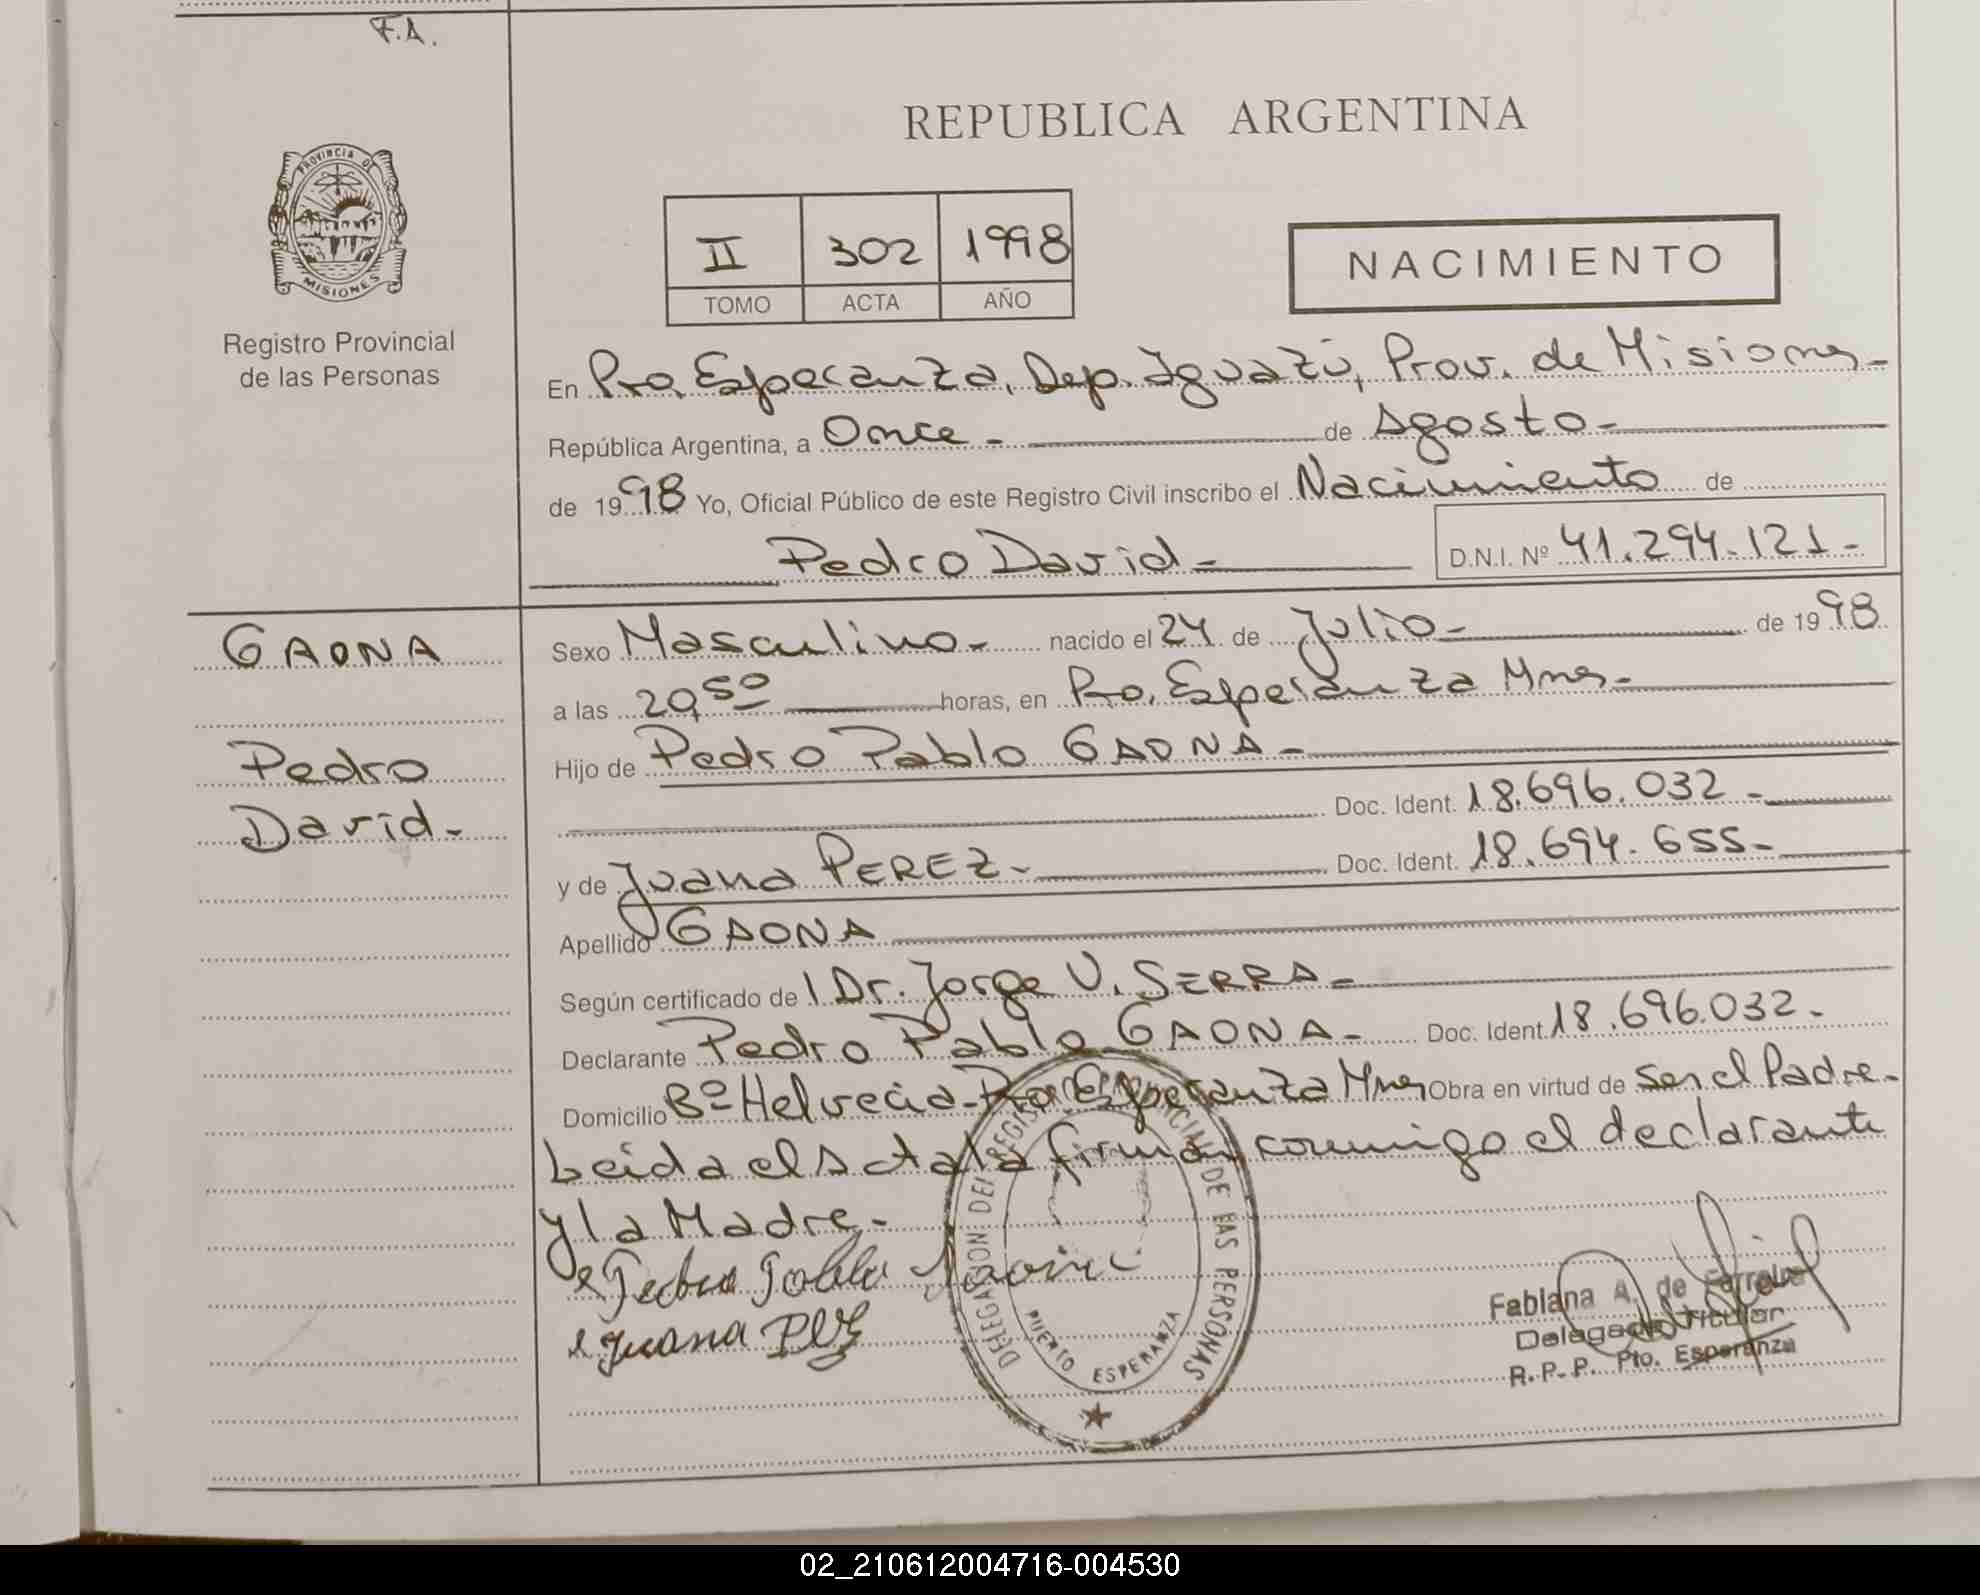 F.A.
PROVINCIA DE
MISIONES
Registro Provincial
de las Personas
REPUBLICA ARGENTINA
II 302 1998
TOMO ACTA AÑO
NACIMIENTO
En Pto. Esperanza, Dep. Iguazú, Prov. de Misiones-
República Argentina, a Once - de Agosto-
de 1998 Yo, Oficial Público de este Registro Civil inscribo el Nacimiento de
Pedro David- D.N.I. Nº 41.294.121-
GAONA
Pedro
David-
Sexo Masculino- nacido el 24 de Julio- de 1998
a las 20,50 horas, en Pto. Esperanza Mnes-
Hijo de Pedro Pablo GAONA-
Doc. Ident. 18.696.032-
y de Juana PEREZ- Doc. Ident. 18.694.655-
Apellido GAONA
Según certificado de l Dr. Jorge V. SERRA-
Declarante Pedro Pablo GAONA- Doc. Ident. 18.696.032-
Domicilio Bº Helvecia-Pto Esperanza Mnes Obra en virtud de ser el Padre-
Leida el Acta la firman conmigo el declarante
y la Madre-
Pedro Pablo Gaona
Juana
DELEGACION DEL REGISTRO PROVINCIAL DE LAS PERSONAS
PUERTO ESPERANZA
Fabiana A. de Ferreira
Delegado Titular
R.P.P. Pto. Esperanza
02_210612004716-004530